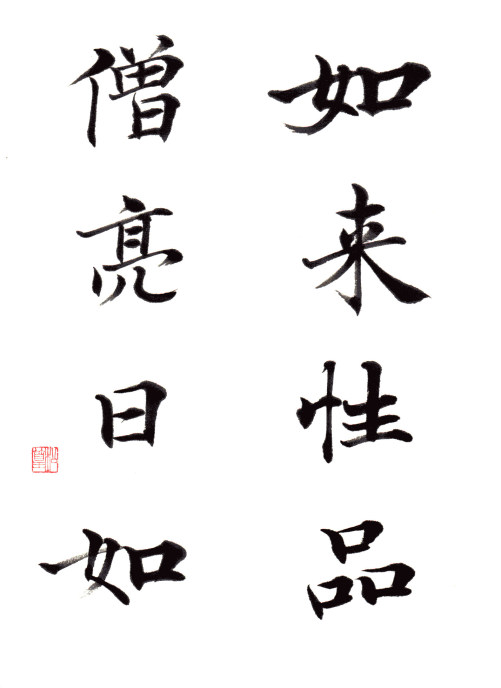 如来性品
僧亮日如